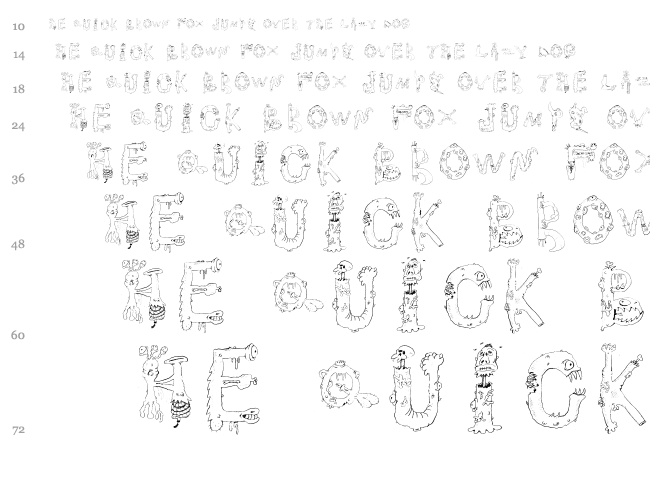 10 HE QUICK BROWN FOX JUMPS OVER THE LAZY DOG
14 HE QUICK BROWN FOX JUMPS OVER THE LAZY DOG
18 HE QUICK BROWN FOX JUMPS OVER THE LAZ
24 HE QUICK BROWN FOX JUMPS OV
36 HE QUICK BROWN FOX
48 HE QUICK BROW
60 HE QUICK B
72 HE QUICK